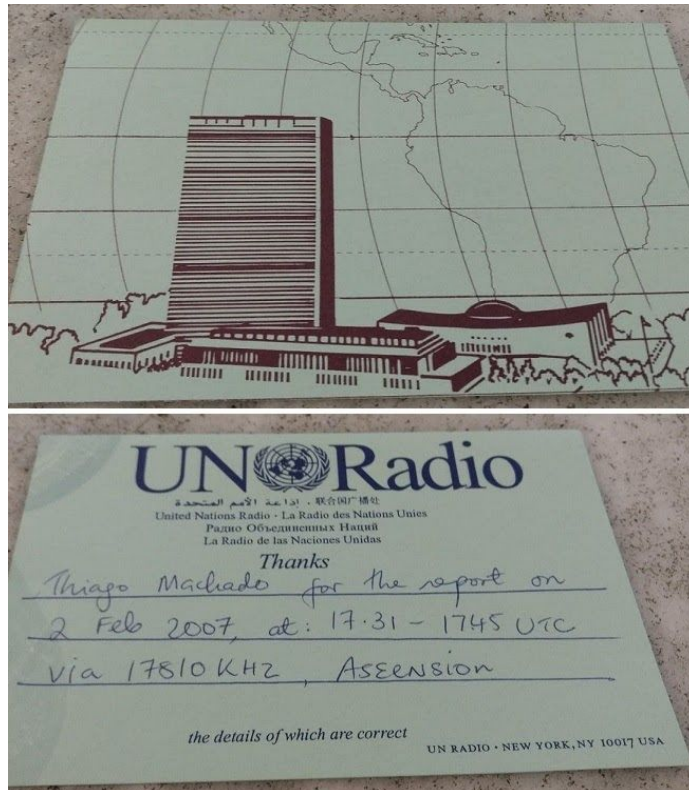 UN Radio
اذاعة الأمم المتحدة . 联合国广播处
United Nations Radio · La Radio des Nations Unies
Радио Объединенных Наций
La Radio de las Naciones Unidas
Thanks
Thiago Machado for the report on
2 Feb 2007, at: 17.31 - 1745 UTC
via 17810 KHz, ASCENSION
the details of which are correct
UN RADIO · NEW YORK, NY 10017 USA